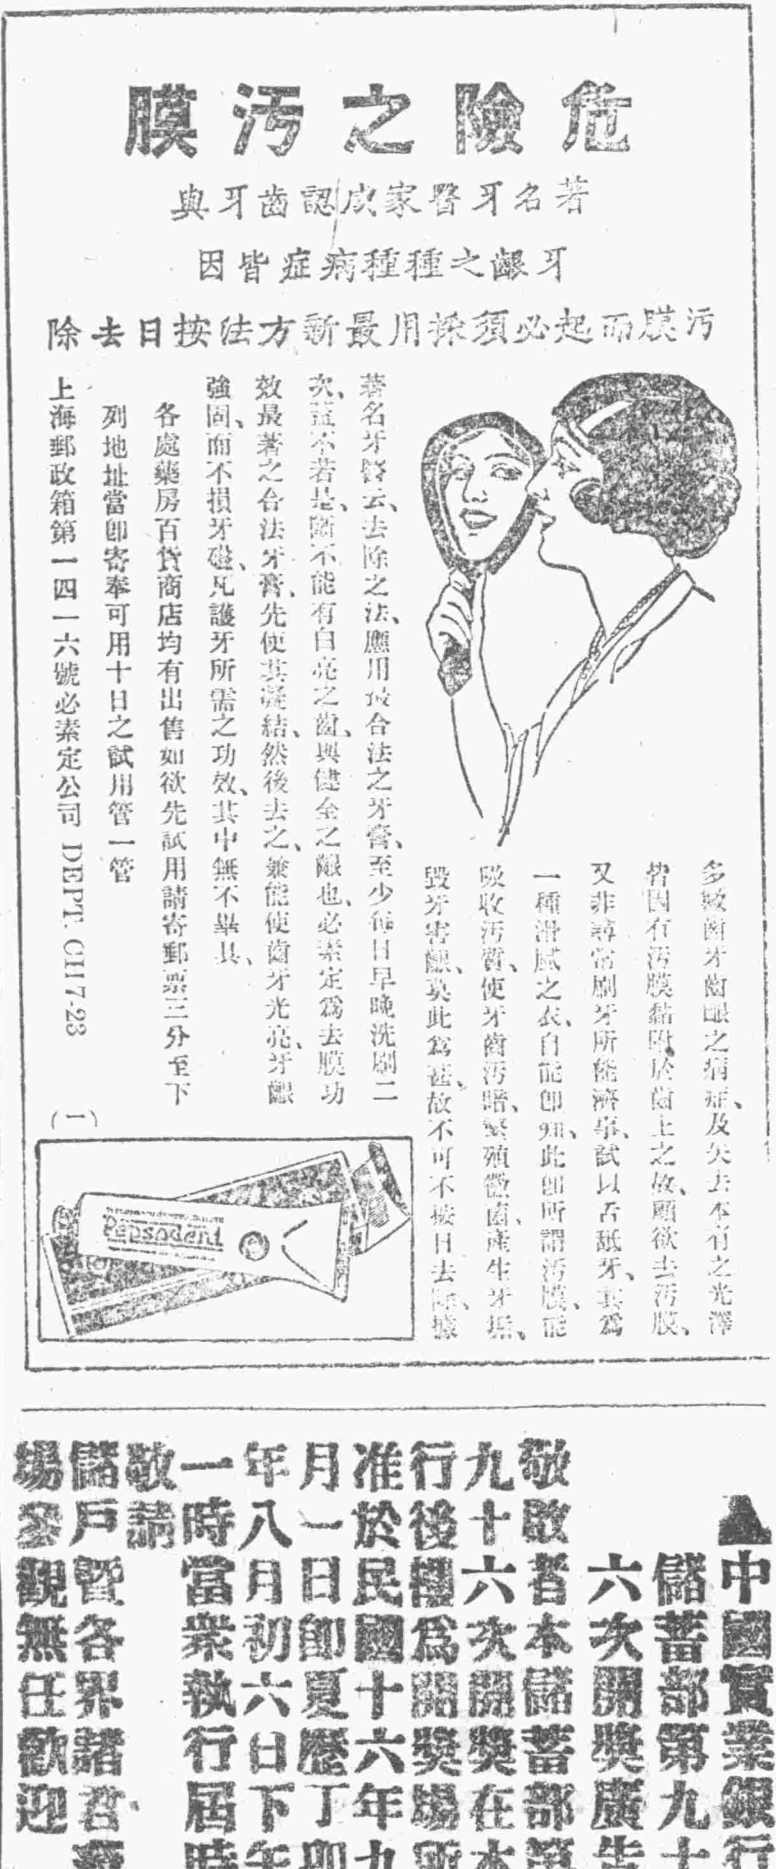 危險之汚膜
著名牙醫家咸認齒牙與
牙齦之種種病症皆因
汚膜而起必須採用最新方法按日去除
多數齒牙齒齦之病症、及失去本有之光澤
皆因有汚膜黏附於齒上之故、顧欲去汚膜、
又非尋常刷牙所能濟事、試以舌舐牙、其爲
一種滑膩之衣、自能卽知、此卽所謂汚膜、能
吸收汚質、使牙齒汚暗、繁殖微菌、產生牙垢、
毀牙害齦、莫此爲甚、故不可不按日去除、據
著名牙醫云、去除之法、應用最合法之牙膏、至少每日早晚洗刷二
次、蓋不若是、斷不能有白亮之齒、與健全之齦也、必素定爲去膜功
效最著之合法牙膏、先使其凝結、然後去之、兼能使齒牙光亮、牙齦
強固、而不損牙磁、凡護牙所需之功效、其中無不畢具、
各處藥房百貨商店均有出售如欲先試用請寄郵票三分至下
列地址當卽寄奉可用十日之試用管一管
上海郵政箱第一四一六號必素定公司 DEPT. CH 7-23
(1)
Pepsodent
▲中國實業銀行
儲蓄部第九十
六次開獎廣告
敬啟者本儲蓄部第
九十六次開獎在本
行後樓爲開獎場所
准於民國十六年九
月一日卽夏歷丁卯
年八月初六日下午
一時當衆執行屆時
敬請
儲戶暨各界諸君
場參觀無任歡迎